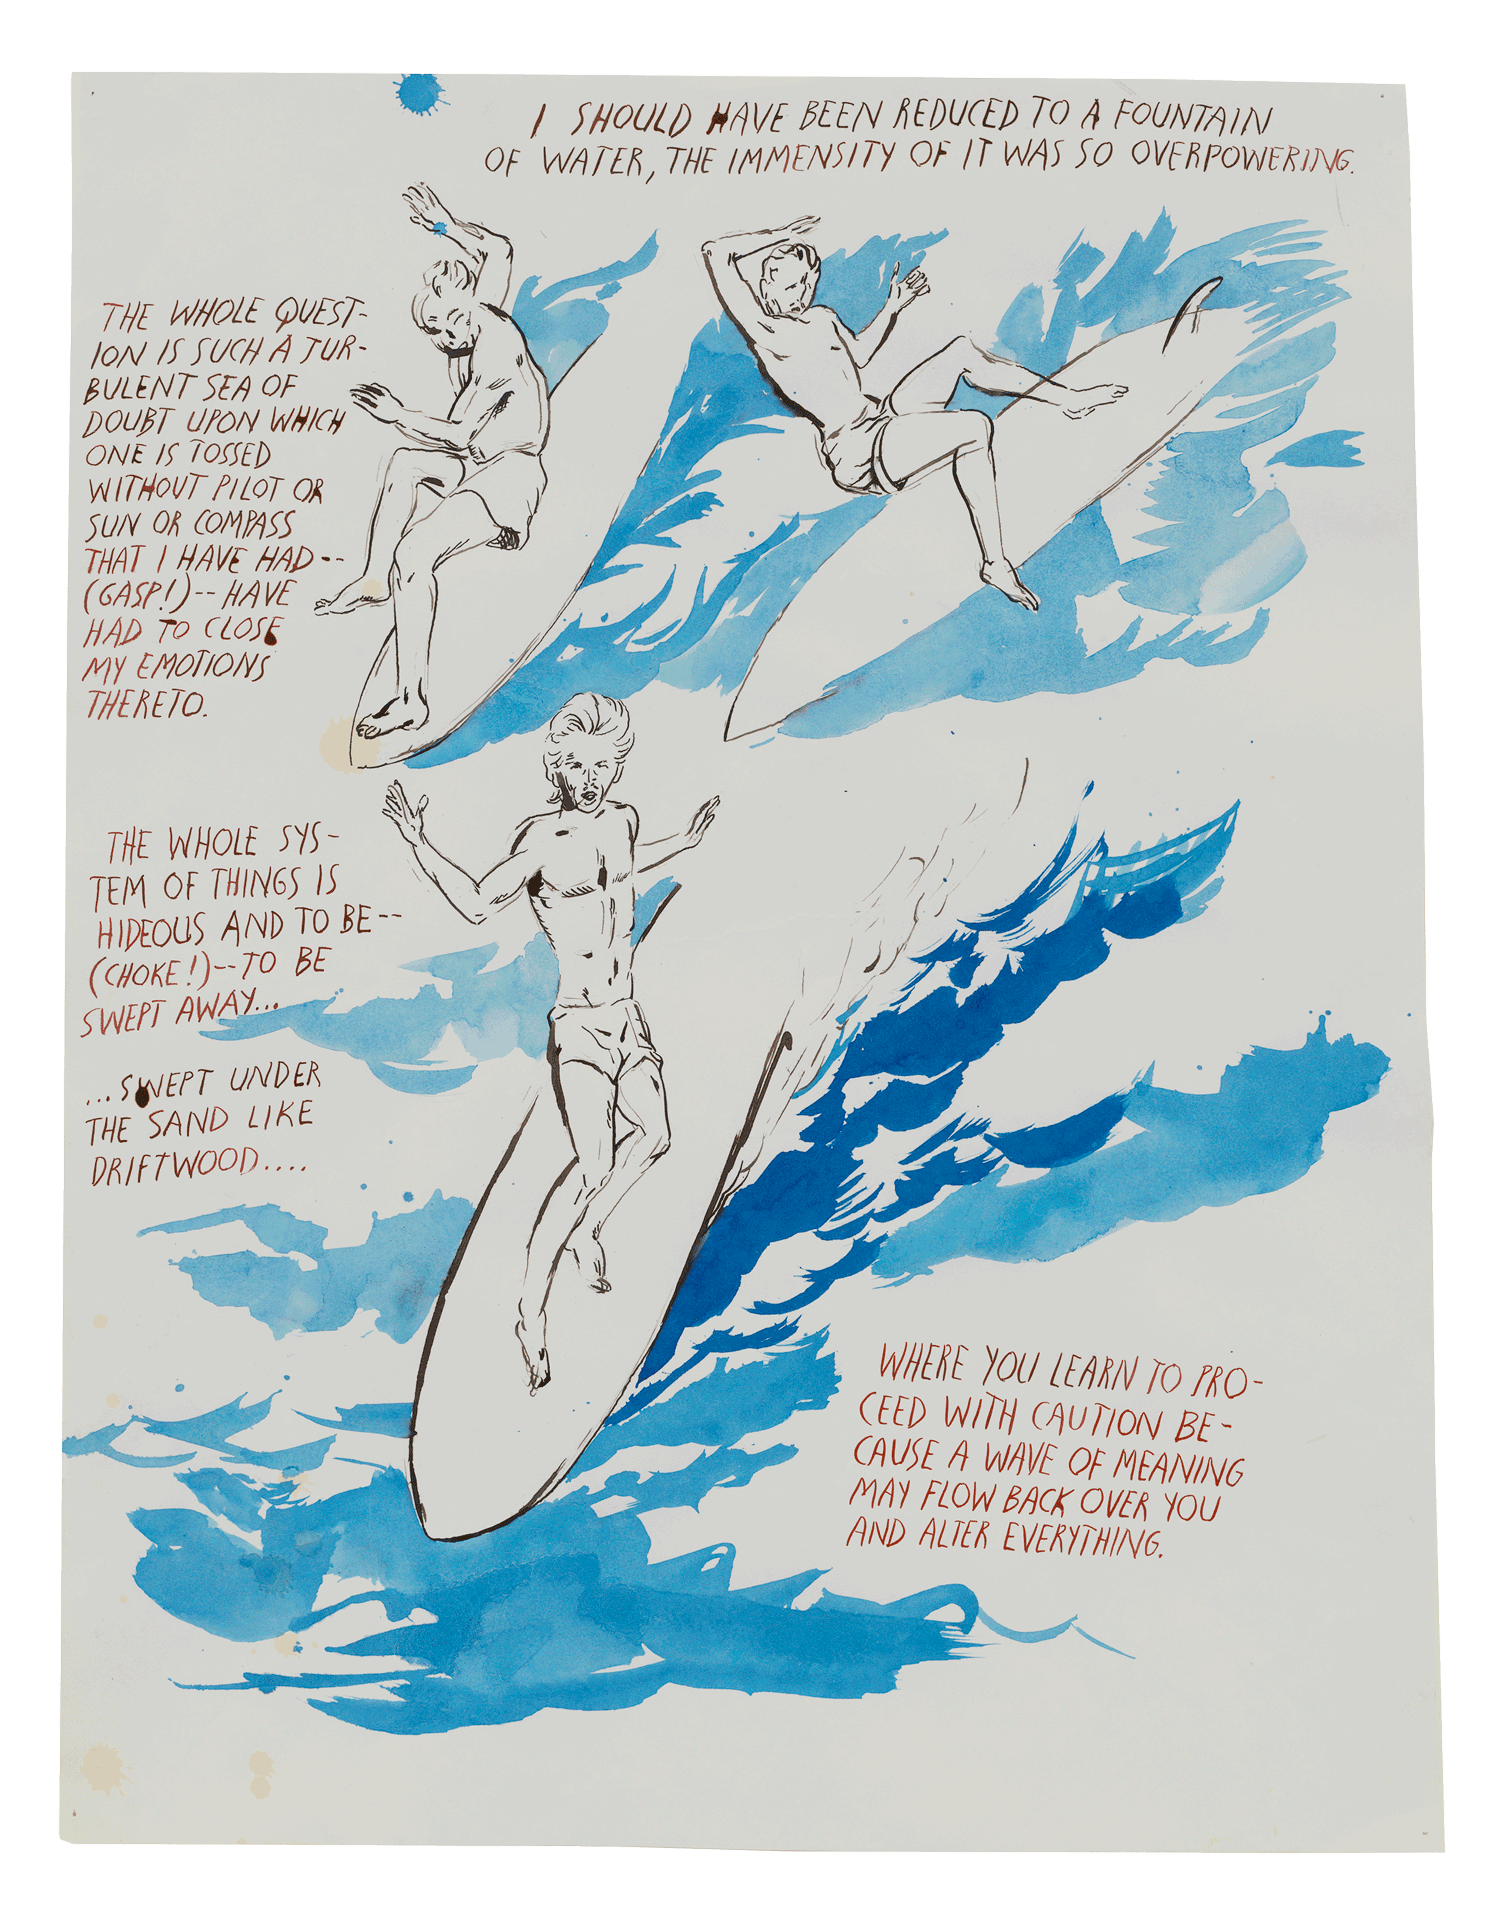 I SHOULD HAVE BEEN REDUCED TO A FOUNTAIN
OF WATER, THE IMMENSITY OF IT WAS SO OVERPOWERING.
THE WHOLE QUEST-
ION IS SUCH A TUR-
BULENT SEA OF
DOUBT UPON WHICH
ONE IS TOSSED
WITHOUT PILOT OR
SUN OR COMPASS
THAT I HAVE HAD--
(GASP!)-- HAVE
HAD TO CLOSE
MY EMOTIONS
THERETO.
THE WHOLE SYS-
TEM OF THINGS IS
HIDEOUS AND TO BE--
(CHOKE!)--TO BE
SWEPT AWAY...
...SWEPT UNDER
THE SAND LIKE
DRIFTWOOD....
WHERE YOU LEARN TO PRO-
CEED WITH CAUTION BE-
CAUSE A WAVE OF MEANING
MAY FLOW BACK OVER YOU
AND ALTER EVERYTHING.